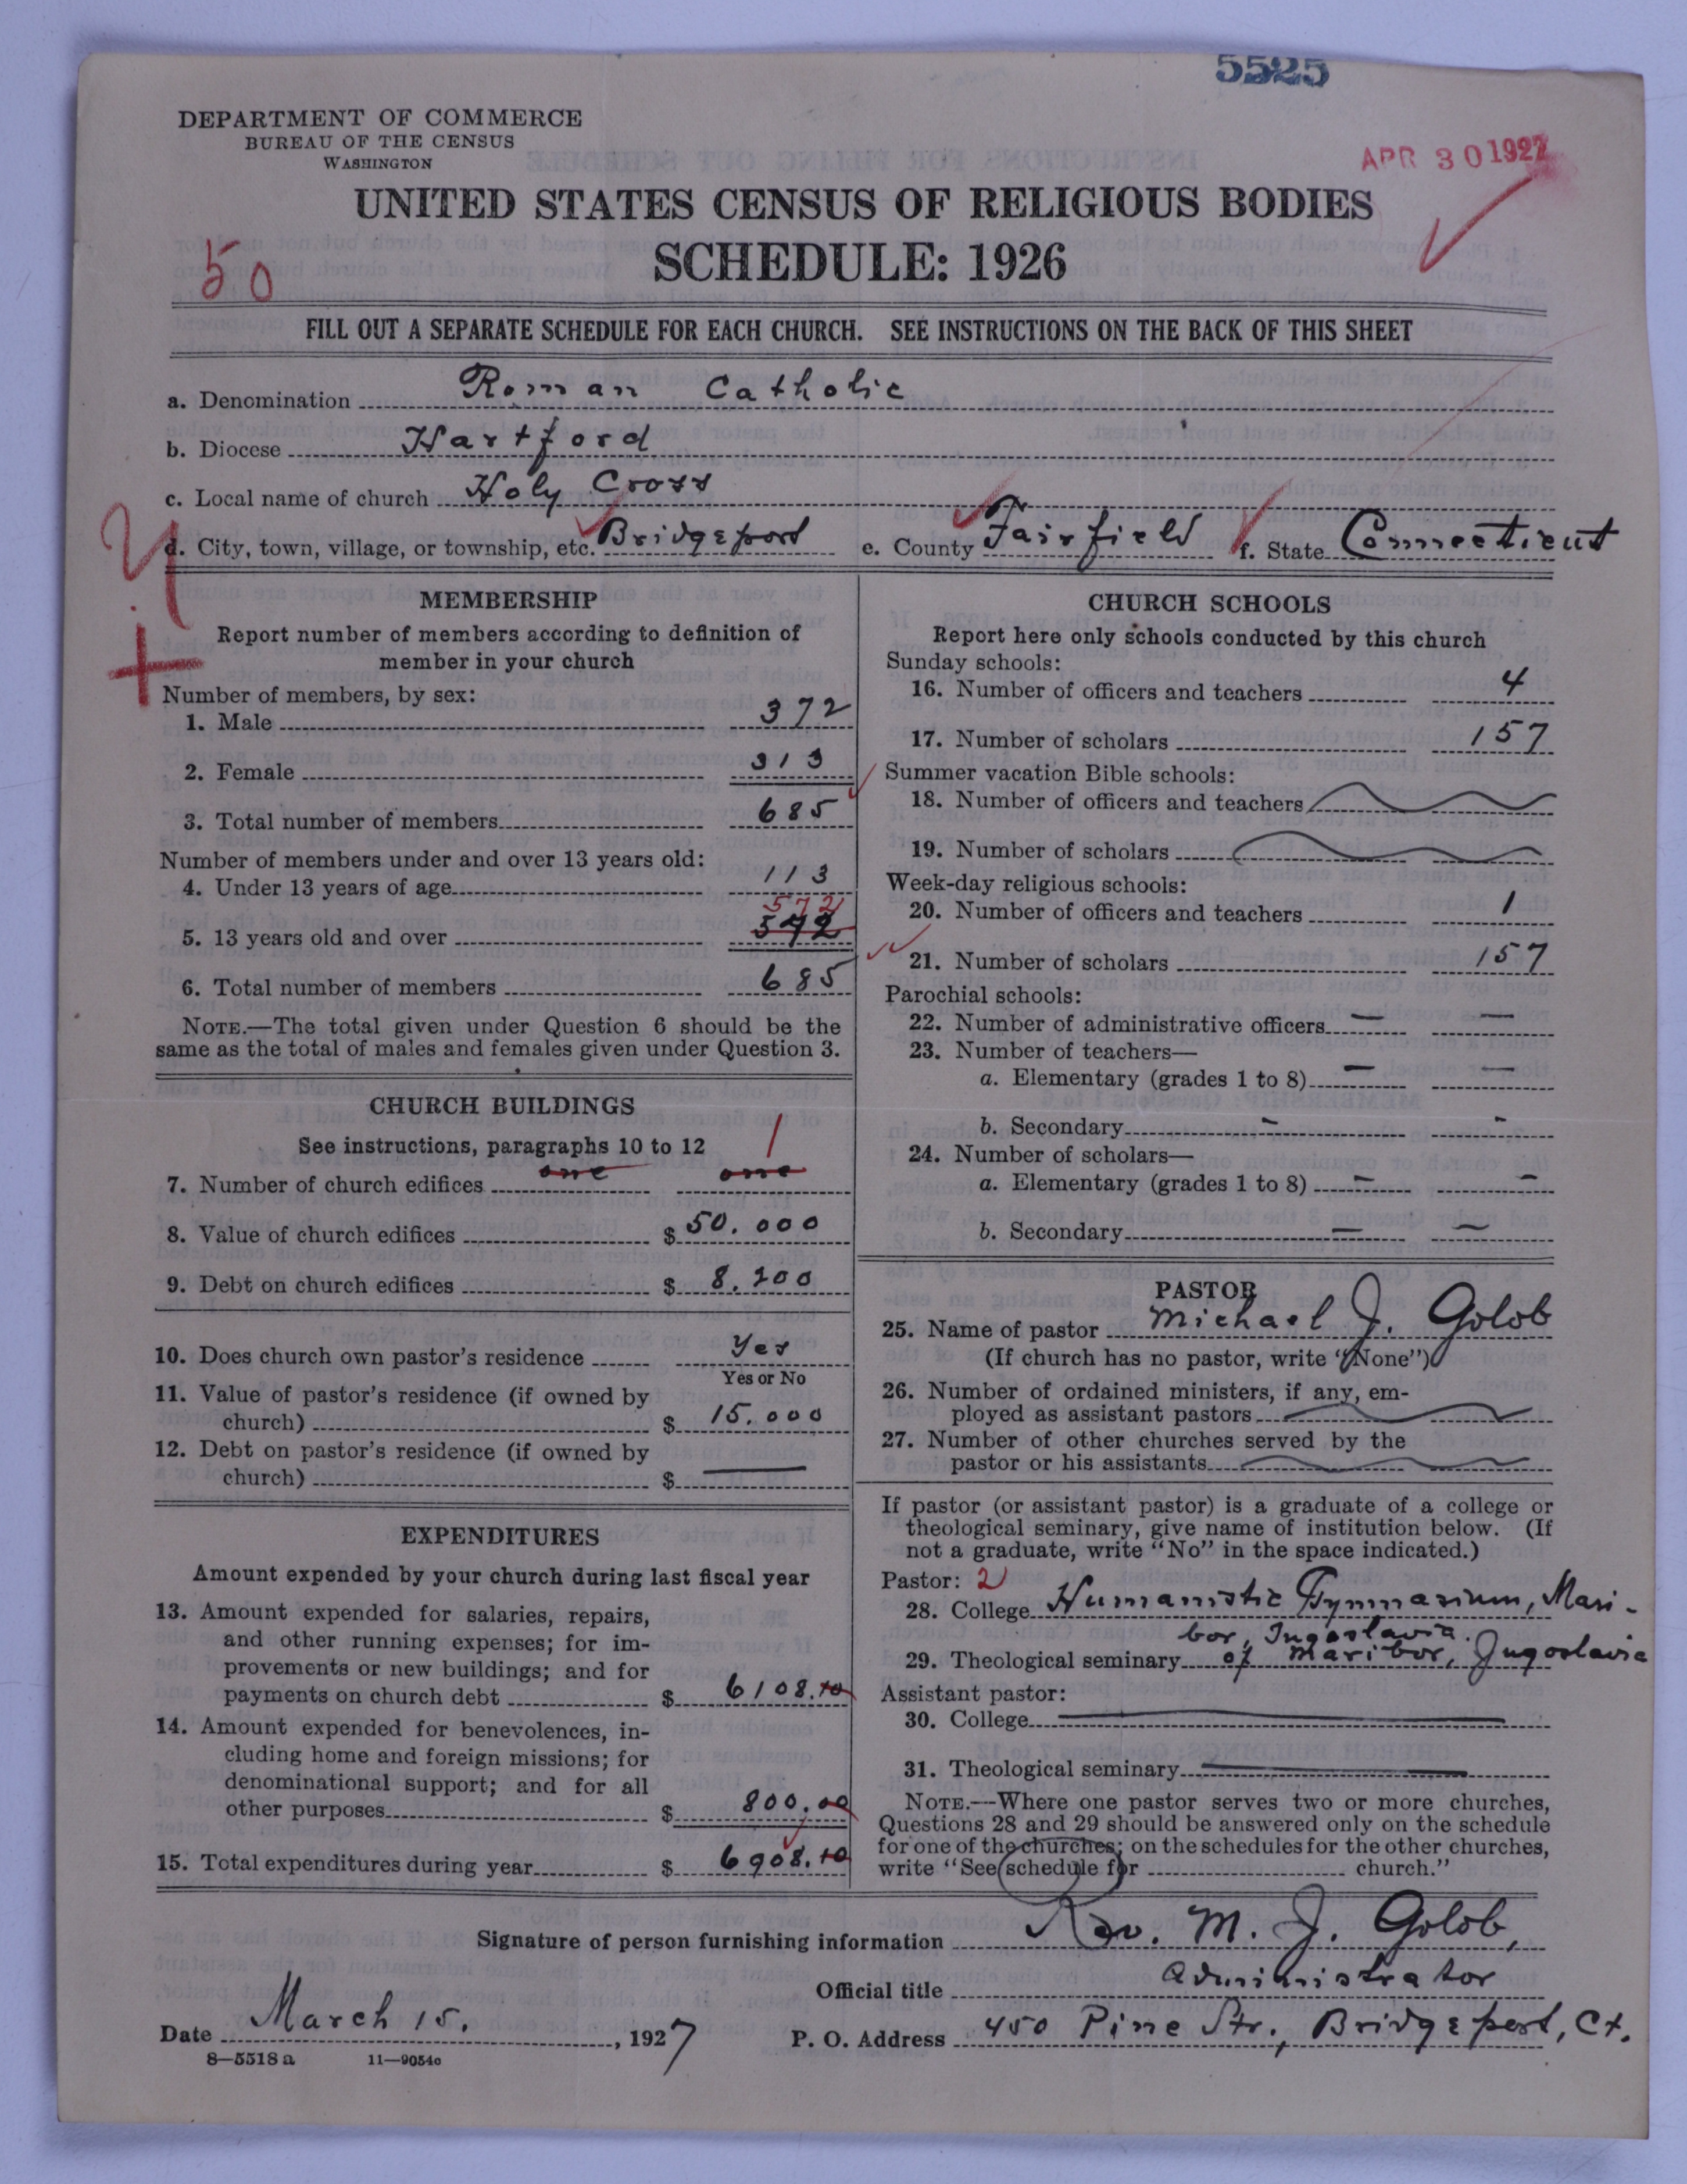 5525
DEPARTMENT OF COMMERCE
BUREAU OF THE CENSUS
WASHINGTON
APR 30 1927
UNITED STATES CENSUS OF RELIGIOUS BODIES
SCHEDULE: 1926
50
FILL OUT A SEPARATE SCHEDULE FOR EACH CHURCH. SEE INSTRUCTIONS ON THE BACK OF THIS SHEET
a. Denomination Roman Catholic
b. Diocese Hartford
c. Local name of church Holy Cross
d. City, town, village, or township, etc. Bridgeport e. County Fairfield f. State Connecticut
MEMBERSHIP
Report number of members according to definition of
member in your church
Number of members, by sex:
1. Male 372
2. Female 313
3. Total number of members 685
Number of members under and over 13 years old:
4. Under 13 years of age 113
572
5. 13 years old and over
6. Total number of members 685
NOTE.—The total given under Question 6 should be the
same as the total of males and females given under Question 3.
CHURCH BUILDINGS
See instructions, paragraphs 10 to 12 1
7. Number of church edifices one one
8. Value of church edifices $ 50.000
9. Debt on church edifices $ 8.200
10. Does church own pastor's residence Yes
Yes or No
11. Value of pastor's residence (if owned by
church) $ 15.000
12. Debt on pastor's residence (if owned by
church) $ —
EXPENDITURES
Amount expended by your church during last fiscal year
13. Amount expended for salaries, repairs,
and other running expenses; for im-
provements or new buildings; and for
payments on church debt $ 6108.10
14. Amount expended for benevolences, in-
cluding home and foreign missions; for
denominational support; and for all
other purposes $ 800.00
15. Total expenditures during year $ 6908.10
CHURCH SCHOOLS
Report here only schools conducted by this church
Sunday schools:
16. Number of officers and teachers 4
17. Number of scholars 157
Summer vacation Bible schools:
18. Number of officers and teachers
19. Number of scholars
Week-day religious schools:
20. Number of officers and teachers 1
21. Number of scholars 157
Parochial schools:
22. Number of administrative officers — —
23. Number of teachers—
a. Elementary (grades 1 to 8) — —
b. Secondary - -
24. Number of scholars—
a. Elementary (grades 1 to 8) - -
b. Secondary — —
PASTOR
25. Name of pastor Michael J. Golob
(If church has no pastor, write "None")
26. Number of ordained ministers, if any, em-
ployed as assistant pastors
27. Number of other churches served by the
pastor or his assistants
If pastor (or assistant pastor) is a graduate of a college or
theological seminary, give name of institution below. (If
not a graduate, write "No" in the space indicated.)
Pastor: 2
28. College Humanistic Gymnasium, Mari-
bor, Jugoslavia.
29. Theological seminary of Maribor, Jugoslavia
Assistant pastor:
30. College
31. Theological seminary
NOTE.—Where one pastor serves two or more churches,
Questions 28 and 29 should be answered only on the schedule
for one of the churches; on the schedules for the other churches,
write "See schedule for church."
Signature of person furnishing information Rev. M. J. Golob,
Official title Administrator
Date March 15. , 1927 P. O. Address 450 Pine Str., Bridgeport, Ct.
8—5518a 11—9054c